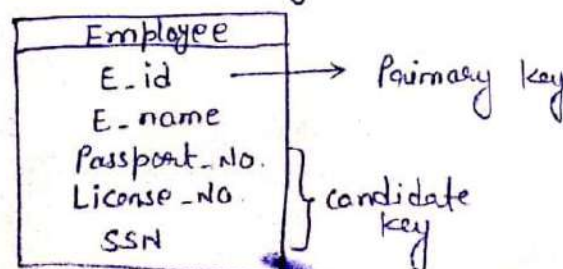 Employee
E_id → Primary key
E_name
Passport_No.
License_No.
SSN
candidate
key